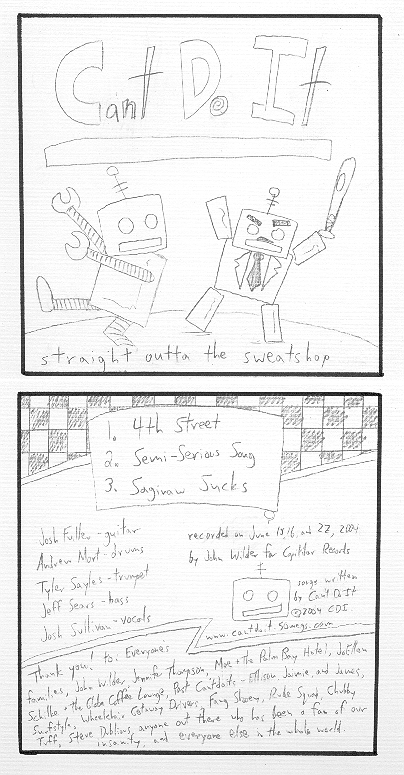 Can't Do It
straight outta the sweatshop
1. 4th Street
2. Semi-Serious Song
3. Saginaw Sucks
Josh Fuller - guitar
Andrew Mort - drums
Tyler Sayles - trumpet
Jeff Sears - bass
Josh Sullivan - vocals
recorded on June 15, 16, and 22, 2004
by John Wilder for Records
songs written
by Can't Do It
©2004 CDI.
www.cantdoit.50megs.com
Thank you! to: Everyones
families, John Wilder, Jennifer Thompson, Moe & the Palm Bay Hotel, JoEllen
Schilke & the Globe Coffee Lounge, Past Cantdoits - Ellison, Jaimie, and James,
Surfstyle, Wheelchair Getaway Drivers, Fang Shwey, Rude Squad, Chubby
Tuff, Steve Dubious, anyone out there who has been a fan of our
insanity, and everyone else in the whole world.